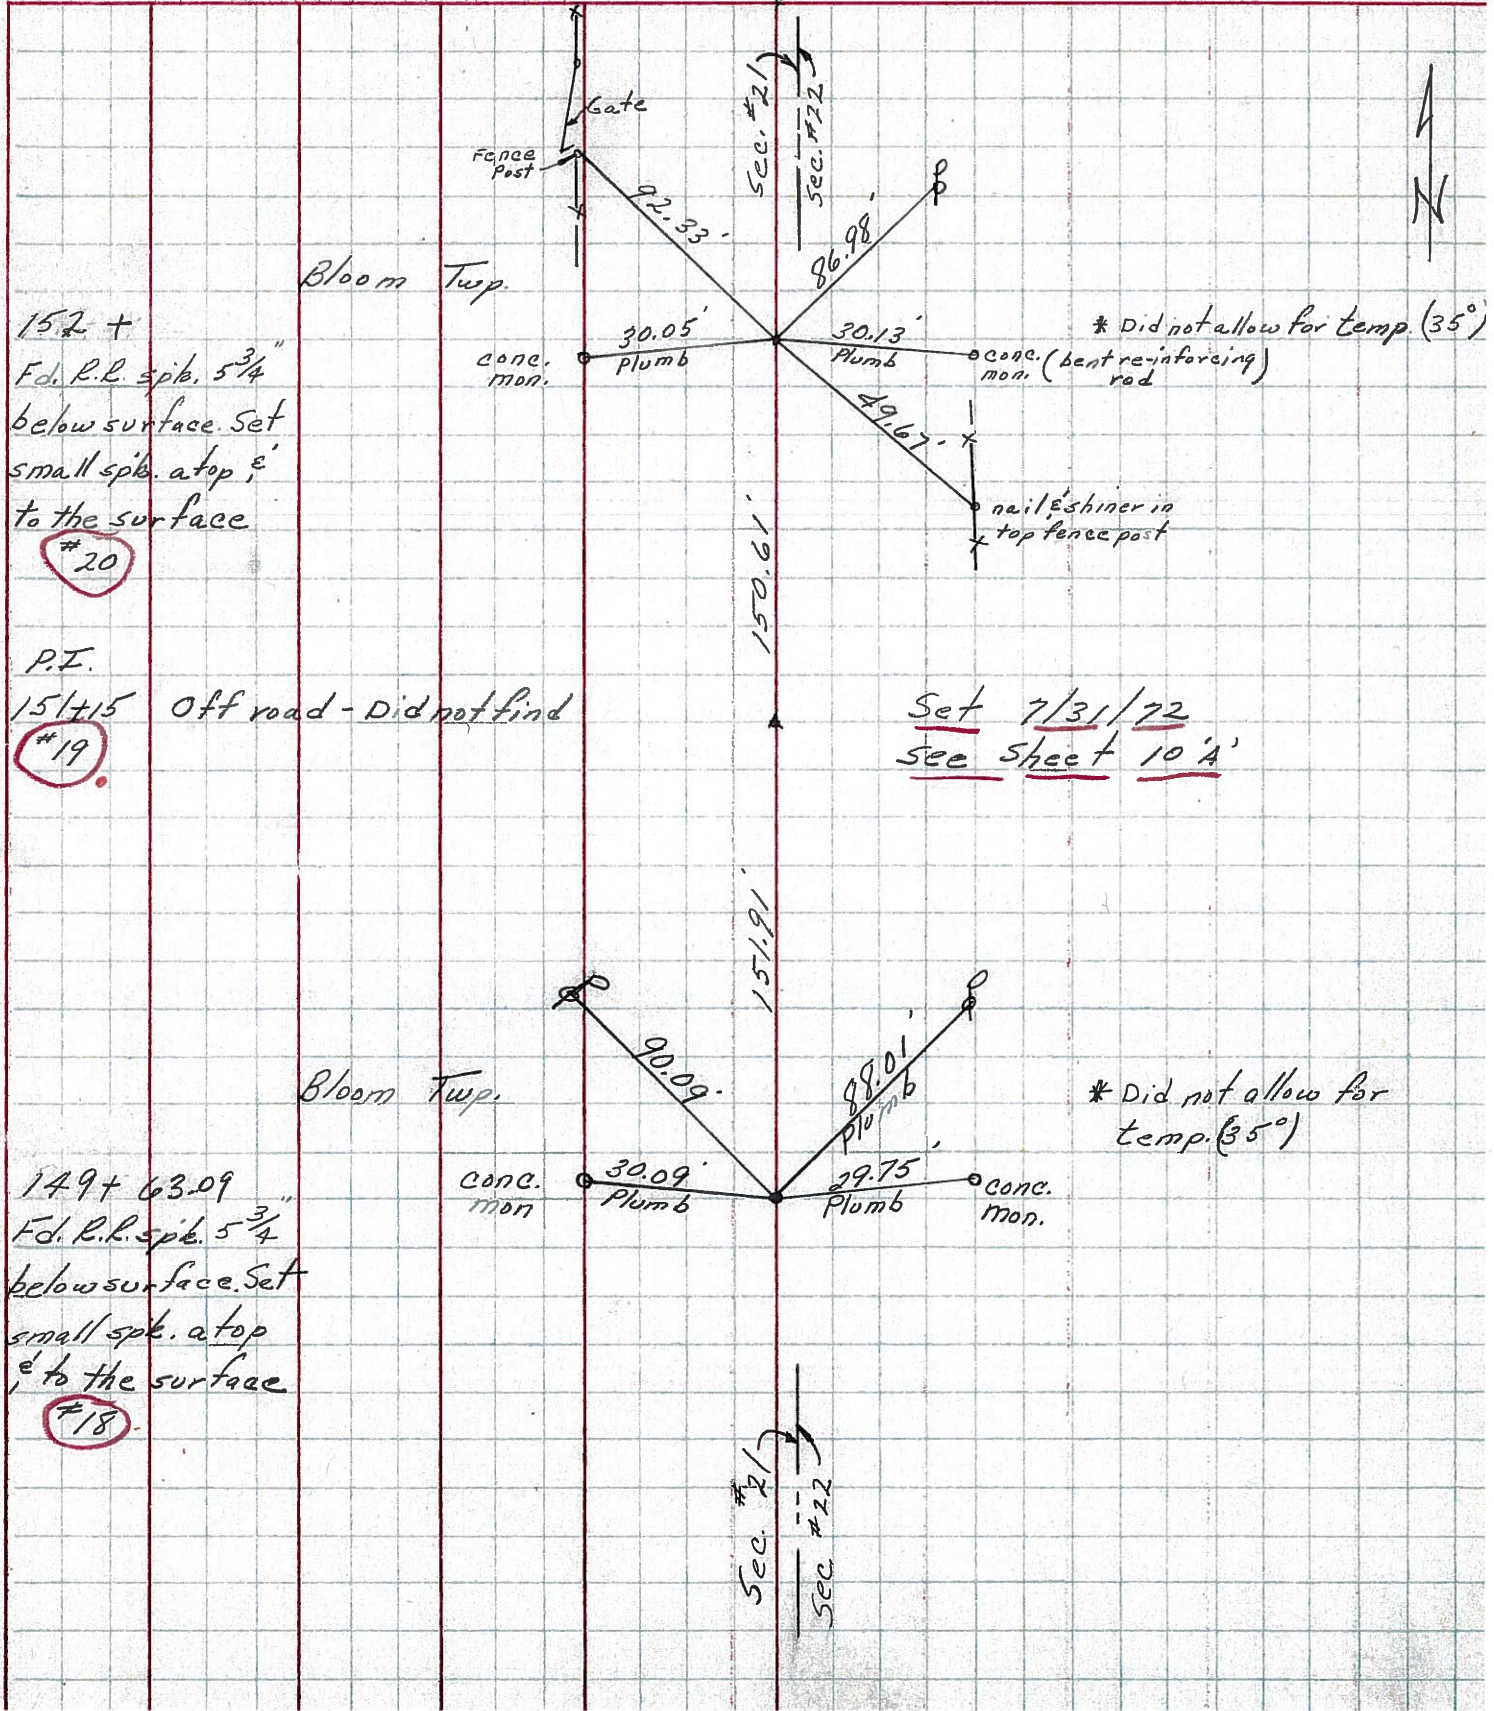 Sec. #21
Sec. #22
Gate
Fence
Post
92.33'
86.98'
Bloom Twp.
152 +
Fd. R.R. spk. 5 3/4"
below surface. Set
small spk. atop &
to the surface
#20
conc.
mon.
30.05'
Plumb
30.13'
Plumb
conc.
mon.
(bent re-inforcing)
rod
* Did not allow for temp. (35°)
49.67'
nail & shiner in
top fence post
150.61'
P.I.
151+15 Off road - Did not find
#19
Set 7/31/72
See Sheet 10 'A'
151.91'
90.09'
88.01'
Plumb
Bloom Twp.
* Did not allow for
temp. (35°)
149+ 63.09
Fd. R.R. spk. 5 3/4"
below surface. Set
small spk. atop
& to the surface
#18
conc.
mon
30.09'
Plumb
29.75'
Plumb
conc.
mon.
Sec. #21
Sec #22
N